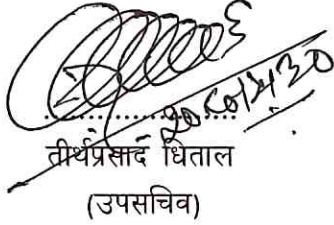 २०८०।५।३०
तीर्थप्रसाद धिताल
(उपसचिव)